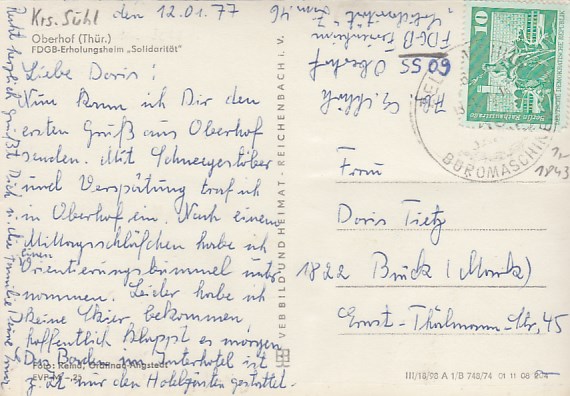 Krs. Suhl
den 12.01.77
Oberhof (Thür.)
FDGB-Erholungsheim „Solidarität"
Liebe Doris!
Nun kann ich Dir den
ersten Gruß aus Oberhof
senden. Mit Schneegestöber
und Verspätung traf ich
in Oberhof ein. Nach einem
Mittagsschläfchen habe ich
einen
Orientierungsbummel unter-
nommen. Leider habe ich
keine Skier bekommen,
hoffentlich klappt es morgen.
Das Baden im Interhotel ist
z. Zt. nur den Hotelgästen gestattet.
Recht herzlich grüßt Dich u. die Familie
Foto: Reind, Angstedt
EVP M -,25
VEB BILD UND HEIMAT · REICHENBACH i. V.
46
FDGB-Ferienheim
"Solidarität"
6055 Oberhof
10
Berlin, Rathausstraße
DEUTSCHE DEMOKRATISCHE REPUBLIK
BÜROMASCHINE
1843
Frau
Doris Tietz
1822 Brück (Mark)
Ernst-Thälmann-Str. 45
III/18/90 A 1/B 743/74 01 11 08